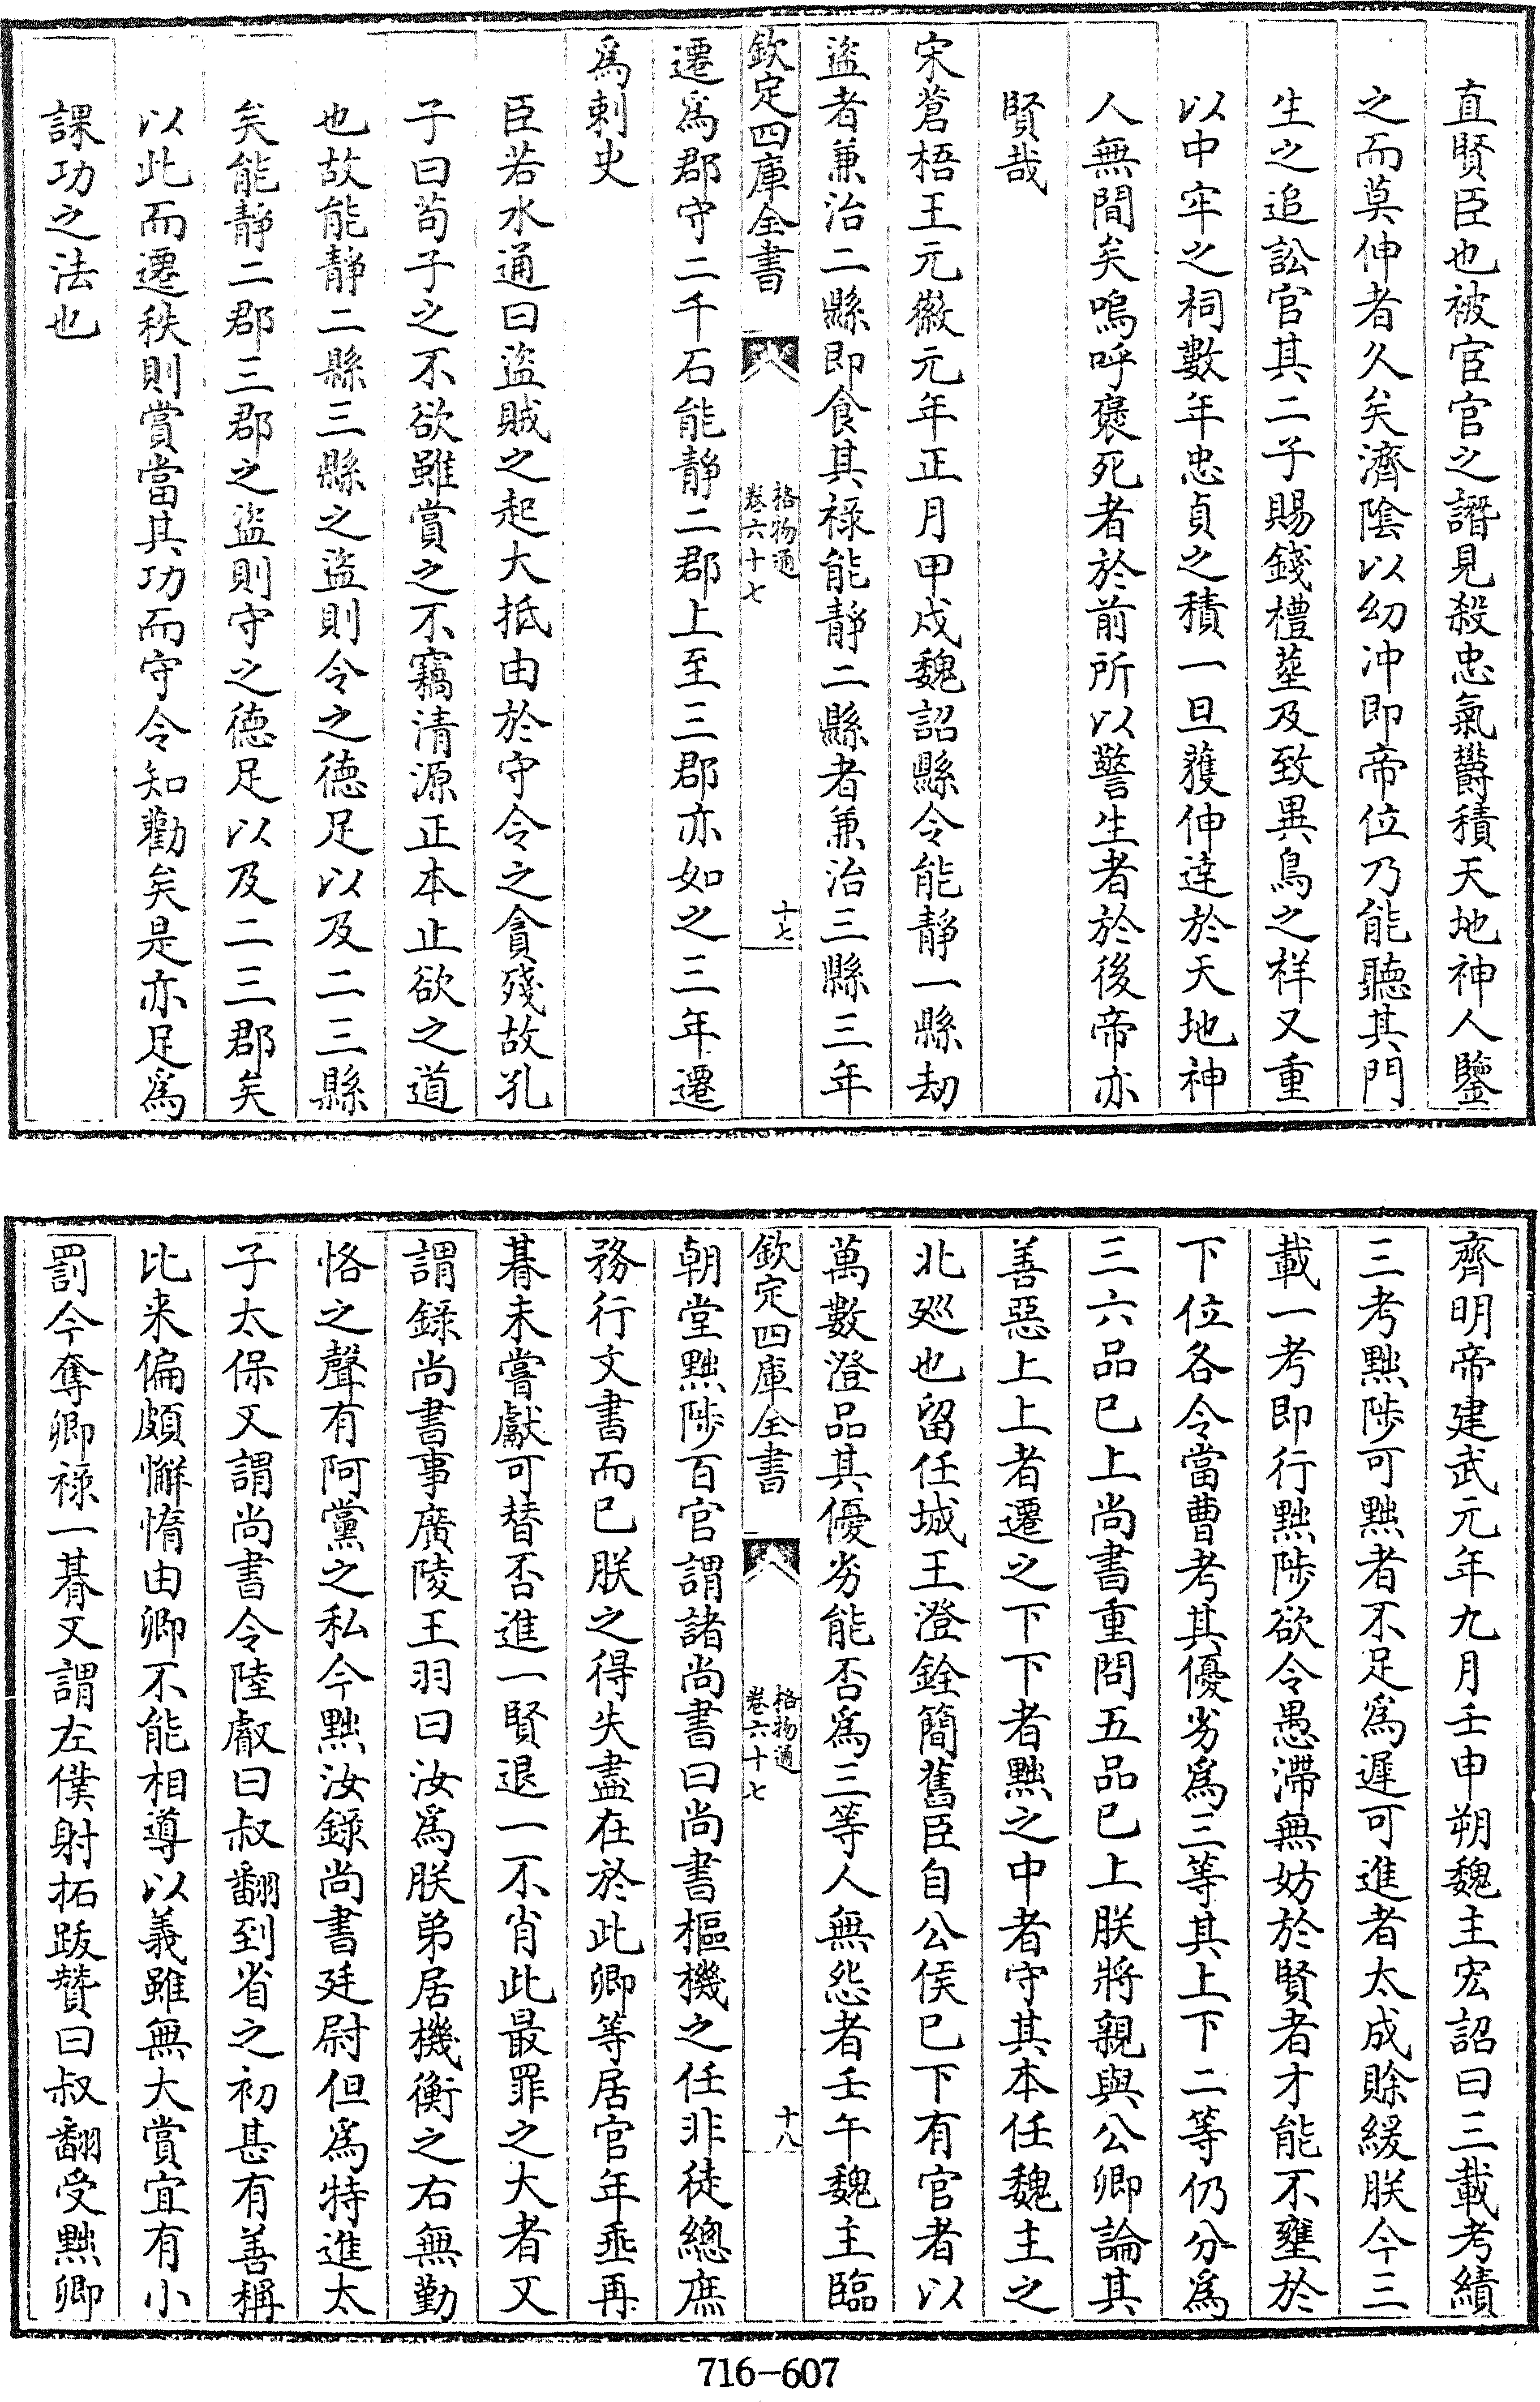 直賢臣也被宦官之譖見殺忠氣欝積天地神人鑒
之而莫伸者久矣濟隂以幼冲即帝位乃能聽其門
生之追訟官其二子賜錢禮塟及致異鳥之祥又重
以中牢之祠數年忠貞之積一旦獲伸達於天地神
人無間矣嗚呼褒死者於前所以警生者於後帝亦
賢哉
宋蒼梧王元徽元年正月甲戍魏詔縣令能靜一縣刼
盜者兼治二縣即食其禄能靜二縣者兼治三縣三年
欽定四庫全書
格物通
卷六十七
十七
遷爲郡守二千石能靜二郡上至三郡亦如之三年遷
爲刺史
臣若水通曰盜賊之起大抵由於守令之貪殘故孔
子曰茍子之不欲雖賞之不竊清源正本止欲之道
也故能靜二縣三縣之盜則令之徳足以及二三縣
矣能靜二郡三郡之盜則守之徳足以及二三郡矣
以此而遷秩則賞當其功而守令知勸矣是亦足爲
課功之法也
齊明帝建武元年九月壬申朔魏主宏詔曰三載考績
三考黜陟可黜者不足爲遲可進者太成賖緩朕今三
載一考即行黜陟欲令愚滯無妨於賢者才能不壅於
下位各令當曹考其優劣爲三等其上下二等仍分爲
三六品已上尚書重問五品已上朕將親與公卿論其
善惡上上者遷之下下者黜之中者守其本任魏主之
北廵也留任城王澄銓簡舊臣自公侯已下有官者以
萬數澄品其優劣能否爲三等人無怨者壬午魏主臨
欽定四庫全書
格物通
卷六十七
十八
朝堂黜陟百官謂諸尚書曰尚書樞機之任非徒總庶
務行文書而已朕之得失盡在於此卿等居官年垂再
朞未嘗獻可替否進一賢退一不肖此最罪之大者又
謂録尚書事廣陵王羽曰汝爲朕弟居機衡之右無勤
恪之聲有阿黨之私今黜汝録尚書廷尉但爲特進太
子太保又謂尚書令陸叡曰叔翻到省之初甚有善稱
比来偏頗懈惰由卿不能相導以義雖無大賞宜有小
罰今奪卿禄一朞又謂左僕射拓跋贊曰叔翻受黜卿
716-607